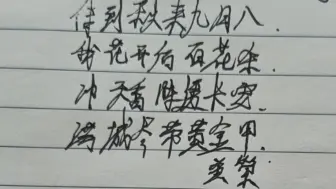 待到秋来九月八.
我花开后百花杀.
冲天香阵透长安.
满城尽带黄金甲.
黄巢